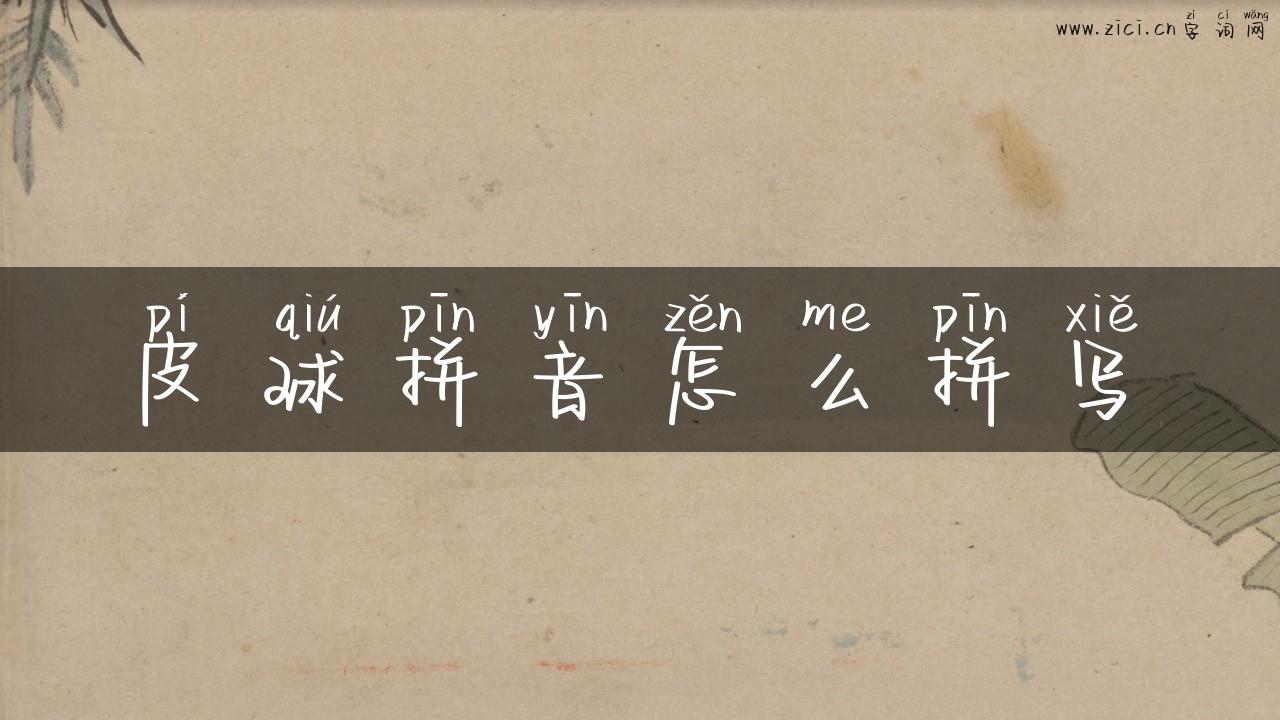 zì cí wǎng
www.zici.cn 字词网
pí qiú pīn yīn zěn me pīn xiě
皮球拼音怎么拼写